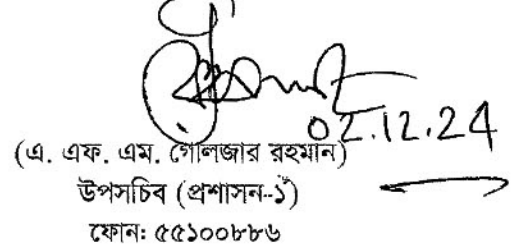 02.12.24
(এ. এফ. এম. গোলজার রহমান)
উপসচিব (প্রশাসন-১)
ফোন: ৫৫১০০৮৮৬